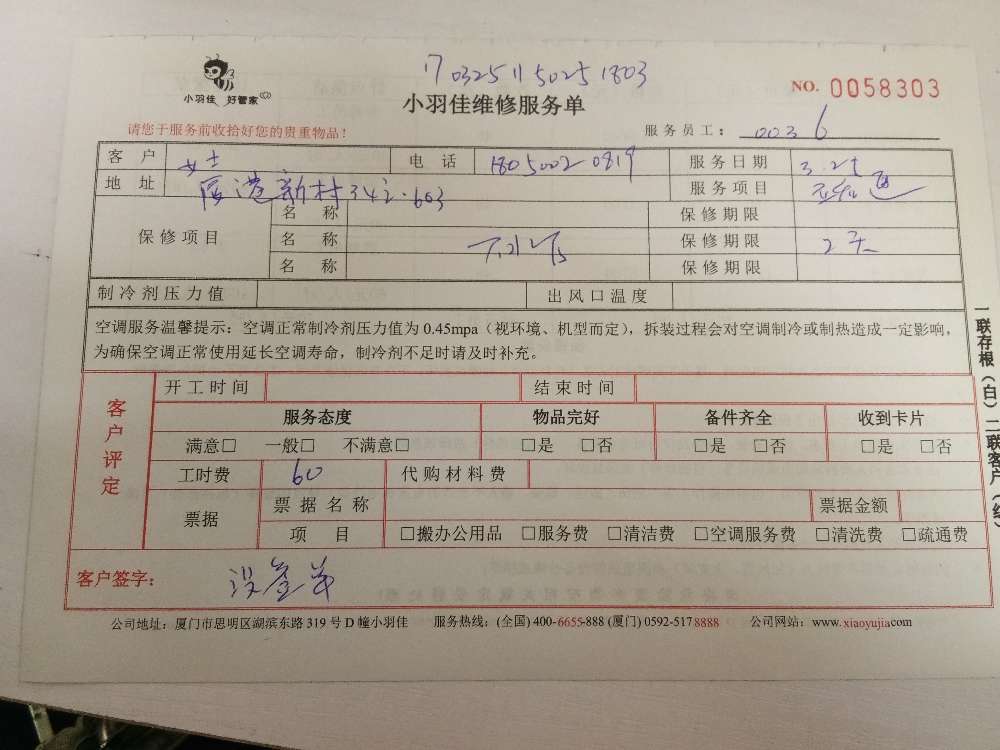 17032511 5025 1803
小羽佳 好管家
小羽佳维修服务单
NO. 0058303
请您于服务前收拾好您的贵重物品!
服务员工: 0036
客户 女士 电话 18050020819 服务日期 3.25
地址 厦港新村342.603 服务项目
保修项目 名称 保修期限
名称 保修期限 2天
名称 保修期限
制冷剂压力值 出风口温度
空调服务温馨提示:空调正常制冷剂压力值为0.45mpa(视环境、机型而定),拆装过程会对空调制冷或制热造成一定影响,
为确保空调正常使用延长空调寿命,制冷剂不足时请及时补充。
客户评定
开工时间 结束时间
服务态度 物品完好 备件齐全 收到卡片
满意□ 一般□ 不满意□ □是 □否 □是 □否 □是 □否
工时费 60 代购材料费
票据 票据名称 票据金额
项目 □搬办公用品 □服务费 □清洁费 □空调服务费 □清洗费 □疏通费
客户签字: 没签单
公司地址:厦门市思明区湖滨东路319号D幢小羽佳 服务热线:(全国)400-6655-888 (厦门)0592-5178888 公司网站:www.xiaoyujia.com
一联存根(白)二联客户(红)